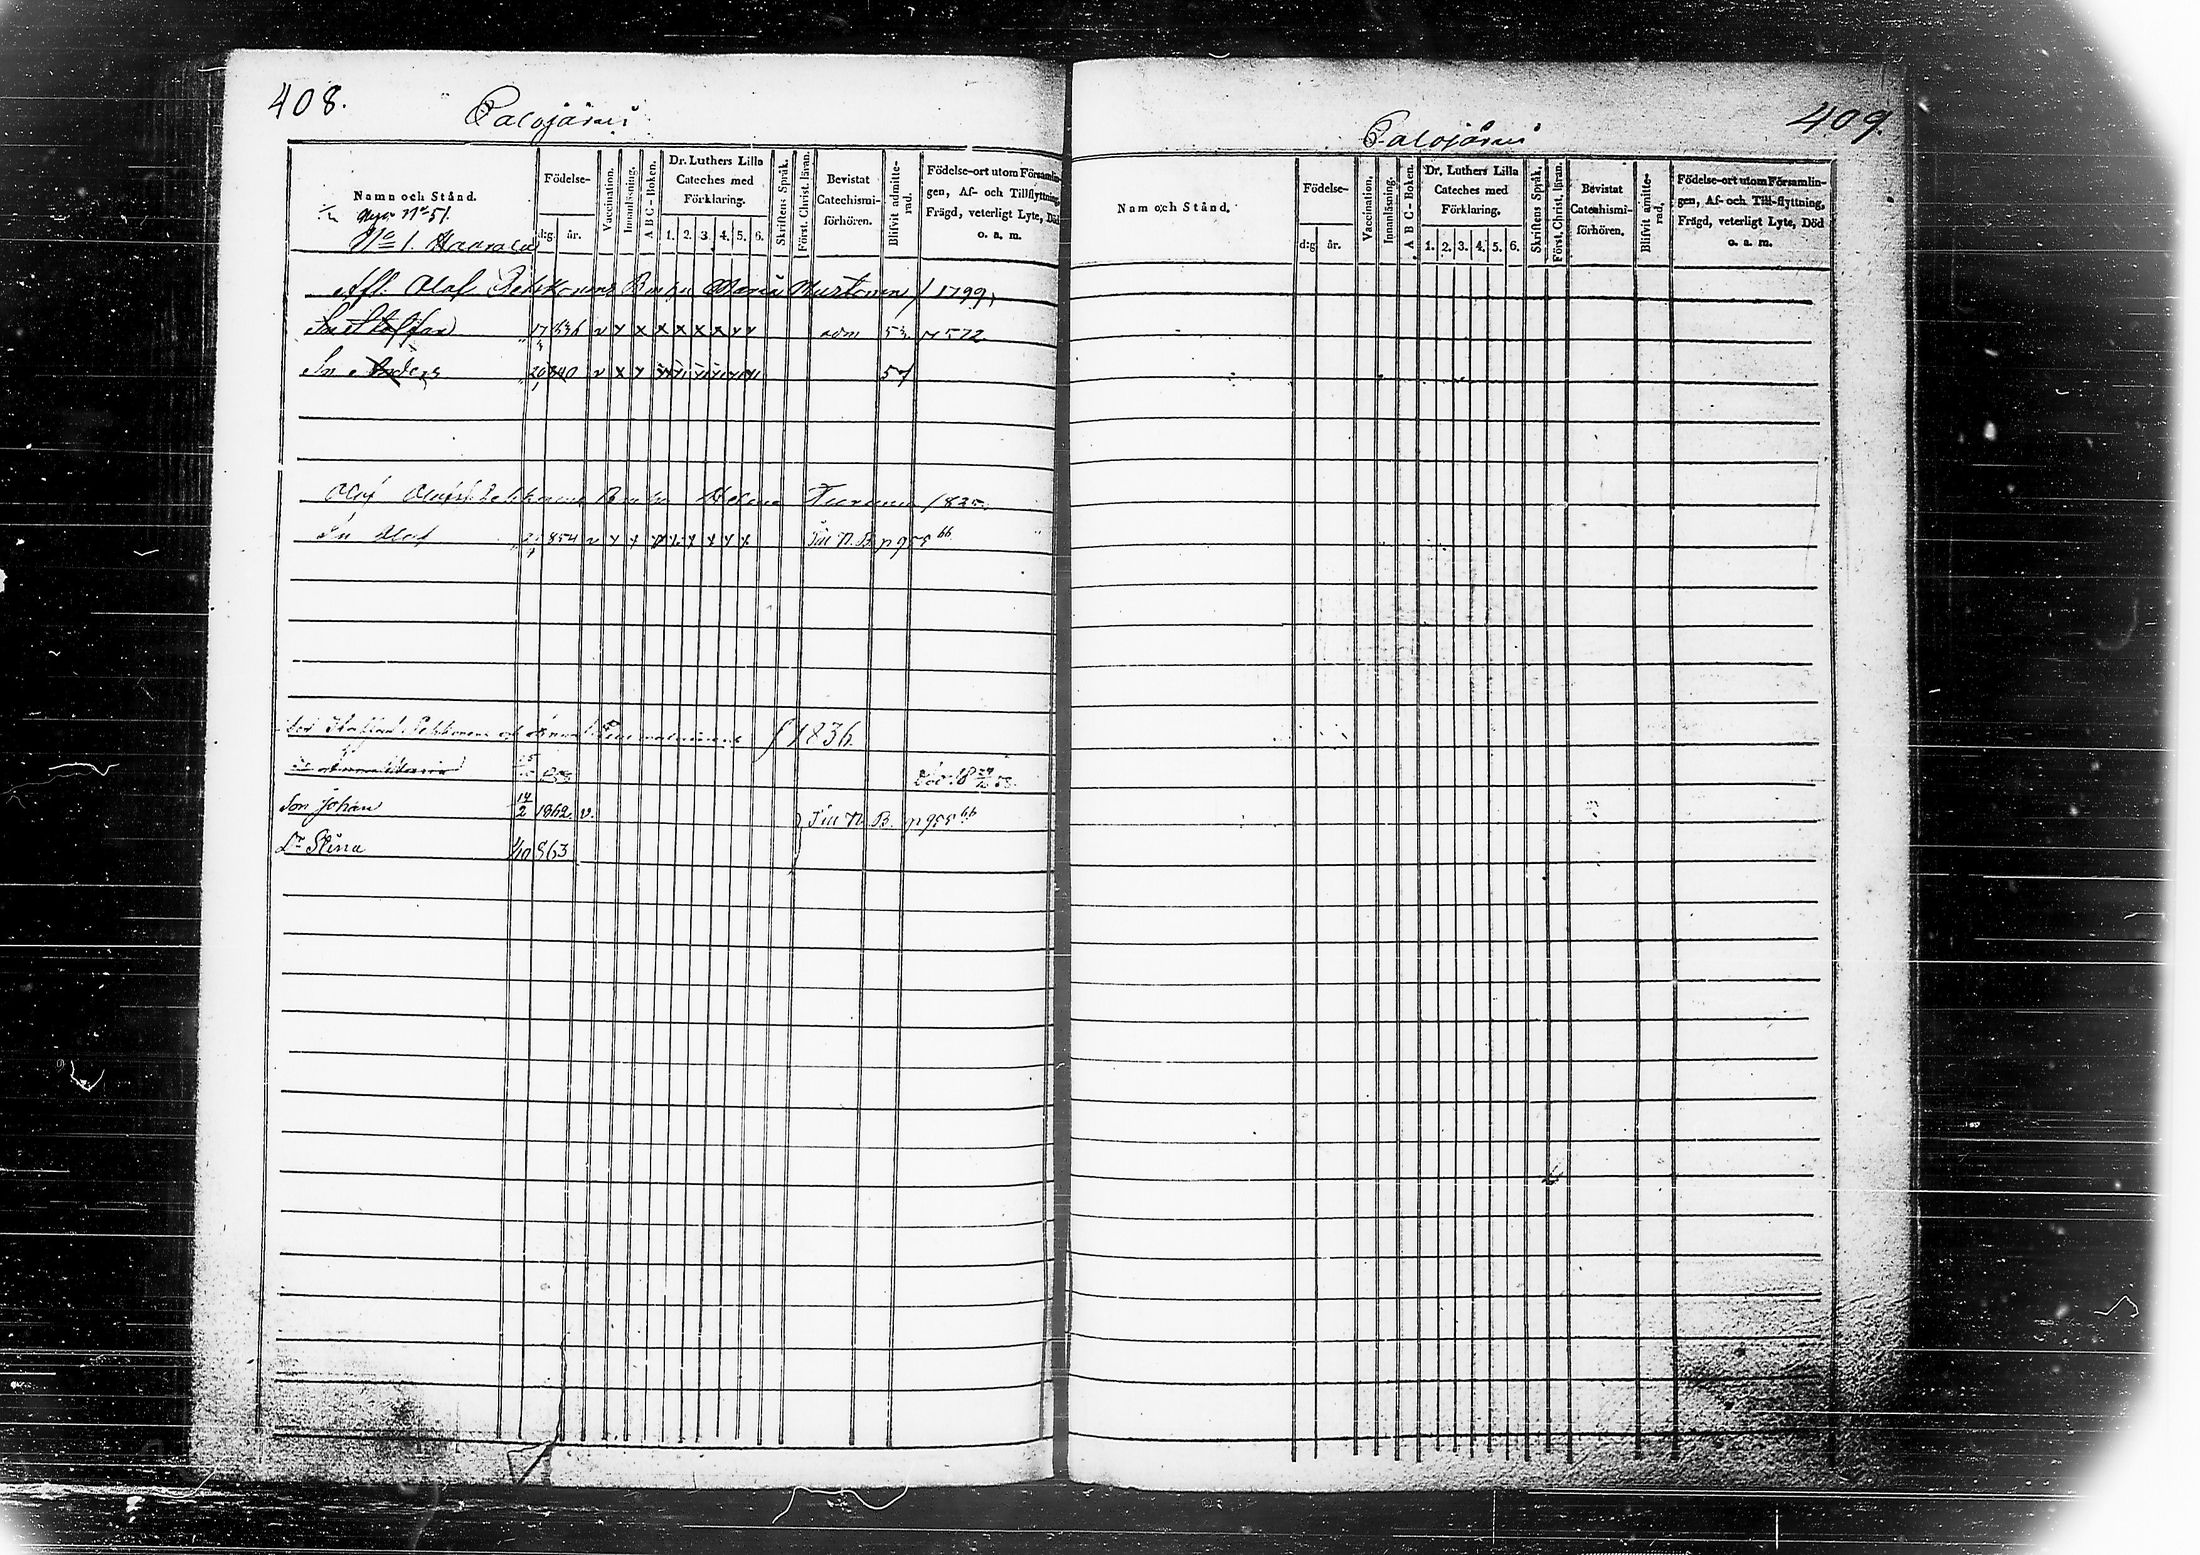 408.
Palojärvi
Namn och Stånd.
Födelse-
d:g år.
Vaccination.
Innanläsning.
A B C - Boken.
Dr. Luthers Lilla Cateches med Förklaring.
1. 2. 3. 4. 5. 6.
Skriftens Språk.
Först. Christ. läran.
Bevistat Catechismi-förhören.
Blifvit admitte-rad.
Födelse-ort utom Församlin-gen, Af- och Tillflyttning, Frägd, veterligt Lyte, Död o. a. m.
Nya No 51.
No 1. Haarala
Afl. Olof Pekkonens Enka Maria Murtonen / 1799,
Sn Staffan 17 836 v x x x x x x x x adm 53 p 572
Sn Anders 20/1 840 v x x 57
Olof Olofss. Pekkonens Enka Helena Turunen / 825.
Sn Olof 854 v x x x x x x x Till N. B. p 955 66
Staffan Pekkonen och Anna / 1836.
Anna Maria 858 Död 18
Son Johan 14/2 1862. v. Till N. B. p 955 66
Dr Stina 4/10 863
409.
Palojärvi
Nam och Stånd.
Födelse-
d:g år.
Vaccination,
Innanläsning.
A B C - Boken.
Dr. Luthers Lilla Cateches med Förklaring.
1. 2. 3. 4. 5. 6.
Skriftens Språk.
Först. Christ. läran.
Bevistat Catechismi-förhören.
Blifvit amitte-rad,
Födelse-ort utom Församlin-gen, Af- och Till-flyttning, Frägd, veterligt Lyte, Död o. a. m.